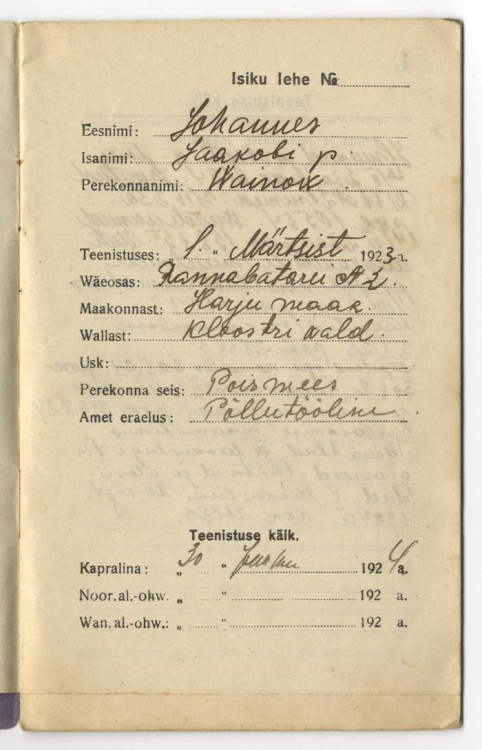 Isiku lehe №
Eesnimi: Johannes
Isanimi: Jaakobi p.
Perekonnanimi: Wainox
Teenistuses: 1. " Märtsist 1923 a.
Wäeosas: Rannabatarei № 2.
Maakonnast: Harju maa
Wallast: Kloostri vald.
Usk:
Perekonna seis: Poismees
Amet eraelus: Põllutööline
Teenistuse käik.
Kapralina: „ 30 " 1924 a.
Noor. al.-ohw. „ " 192 a.
Wan. al.-ohw.: „ " 192 a.